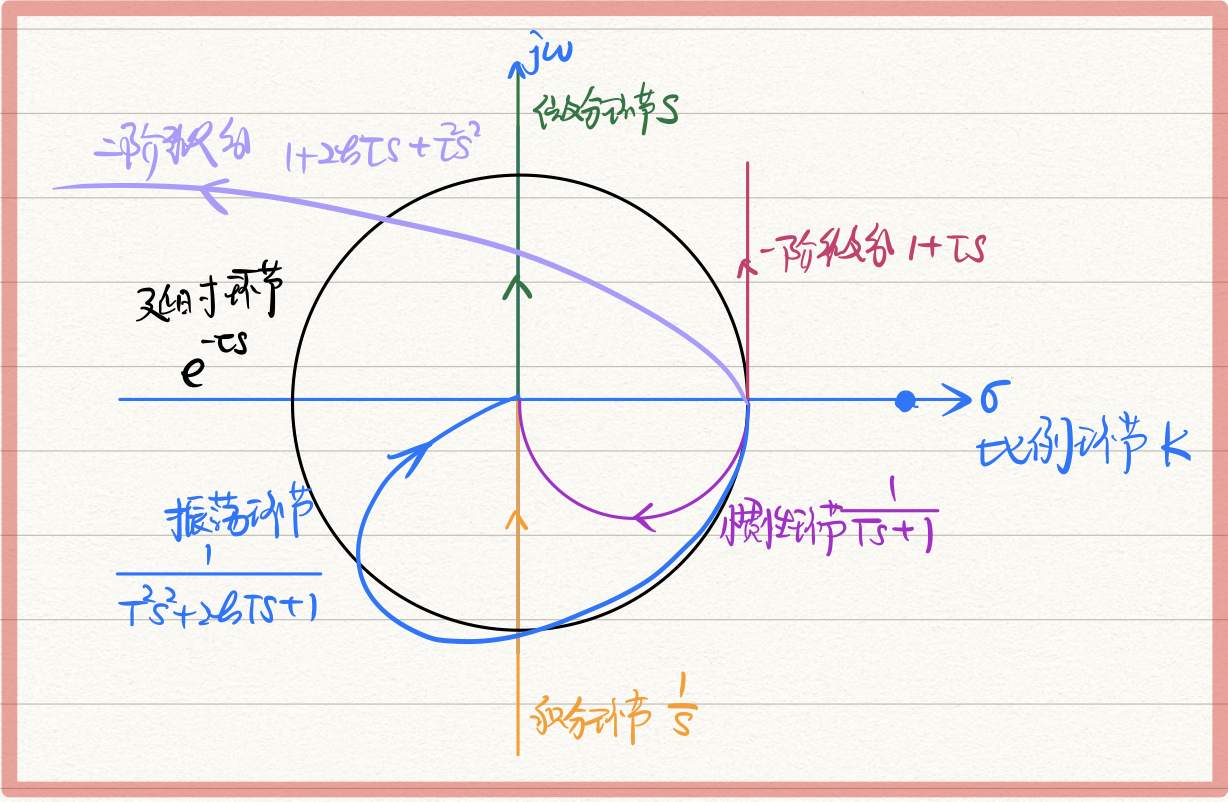 jω
微分环节 S
二阶微分 1+2ξτS+τ²S²
一阶微分 1+τS
延时环节
e^{-τS}
σ
比例环节 K
振荡环节
1
T²S²+2ξTS+1
惯性环节 1/(TS+1)
积分环节 1/S